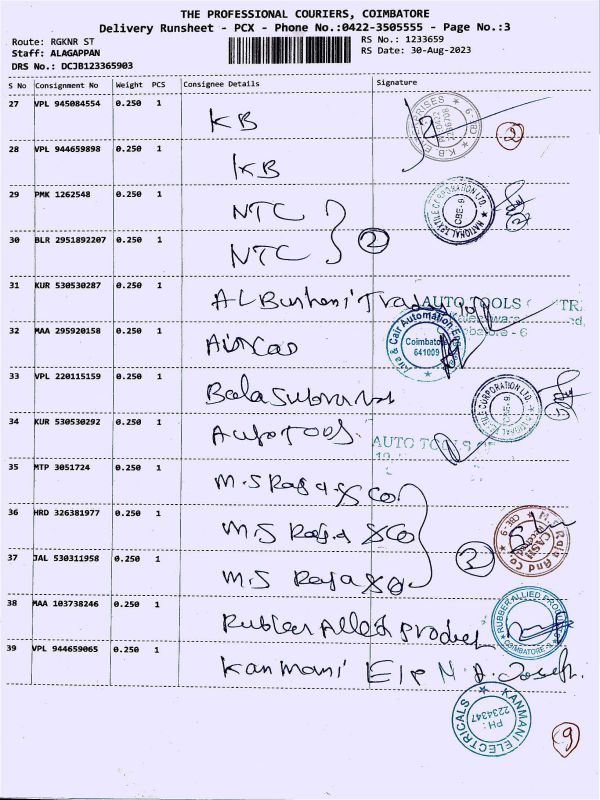 THE PROFESSIONAL COURIERS, COIMBATORE
Delivery Runsheet - PCX - Phone No.:0422-3505555 - Page No.:3
Route: RGKNR ST
RS No.: 1233659
Staff: ALAGAPPAN
RS Date: 30-Aug-2023
DRS No.: DCJB123365903
S No Consignment No Weight PCS Consignee Details Signature
27 VPL 945084554 0.250 1 KB
28 VPL 944659898 0.250 1 KB
2
29 PMK 1262548 0.250 1 NTC
NATIONAL TEXTILE CORPORATION LTD. CBE-9
30 BLR 2951892207 0.250 1 NTC
2
31 KUR 530530287 0.250 1 AL Burhani
AUTO TOOLS
32 MAA 295920158 0.250 1
Coimbatore 641009
33 VPL 220115159 0.250 1
TEXTILE CORPORATION LTD.
34 KUR 530530292 0.250 1 Auto Tools
AUTO
35 MTP 3051724 0.250 1 M.S Raja & Co
36 HRD 326381977 0.250 1 M.S Raja & Co
M.S. Raja And Co. CBE-9 CASH
37 JAL 530311958 0.250 1 M.S Raja & Co
3
38 MAA 103738246 0.250 1 Rubber Allied Product
RUBBER ALLIED PRODUCTS COIMBATORE
39 VPL 944659065 0.250 1 Kanmani Ele M.A. Joseph.
KANMANI ELECTRICALS PH: 2234347
9